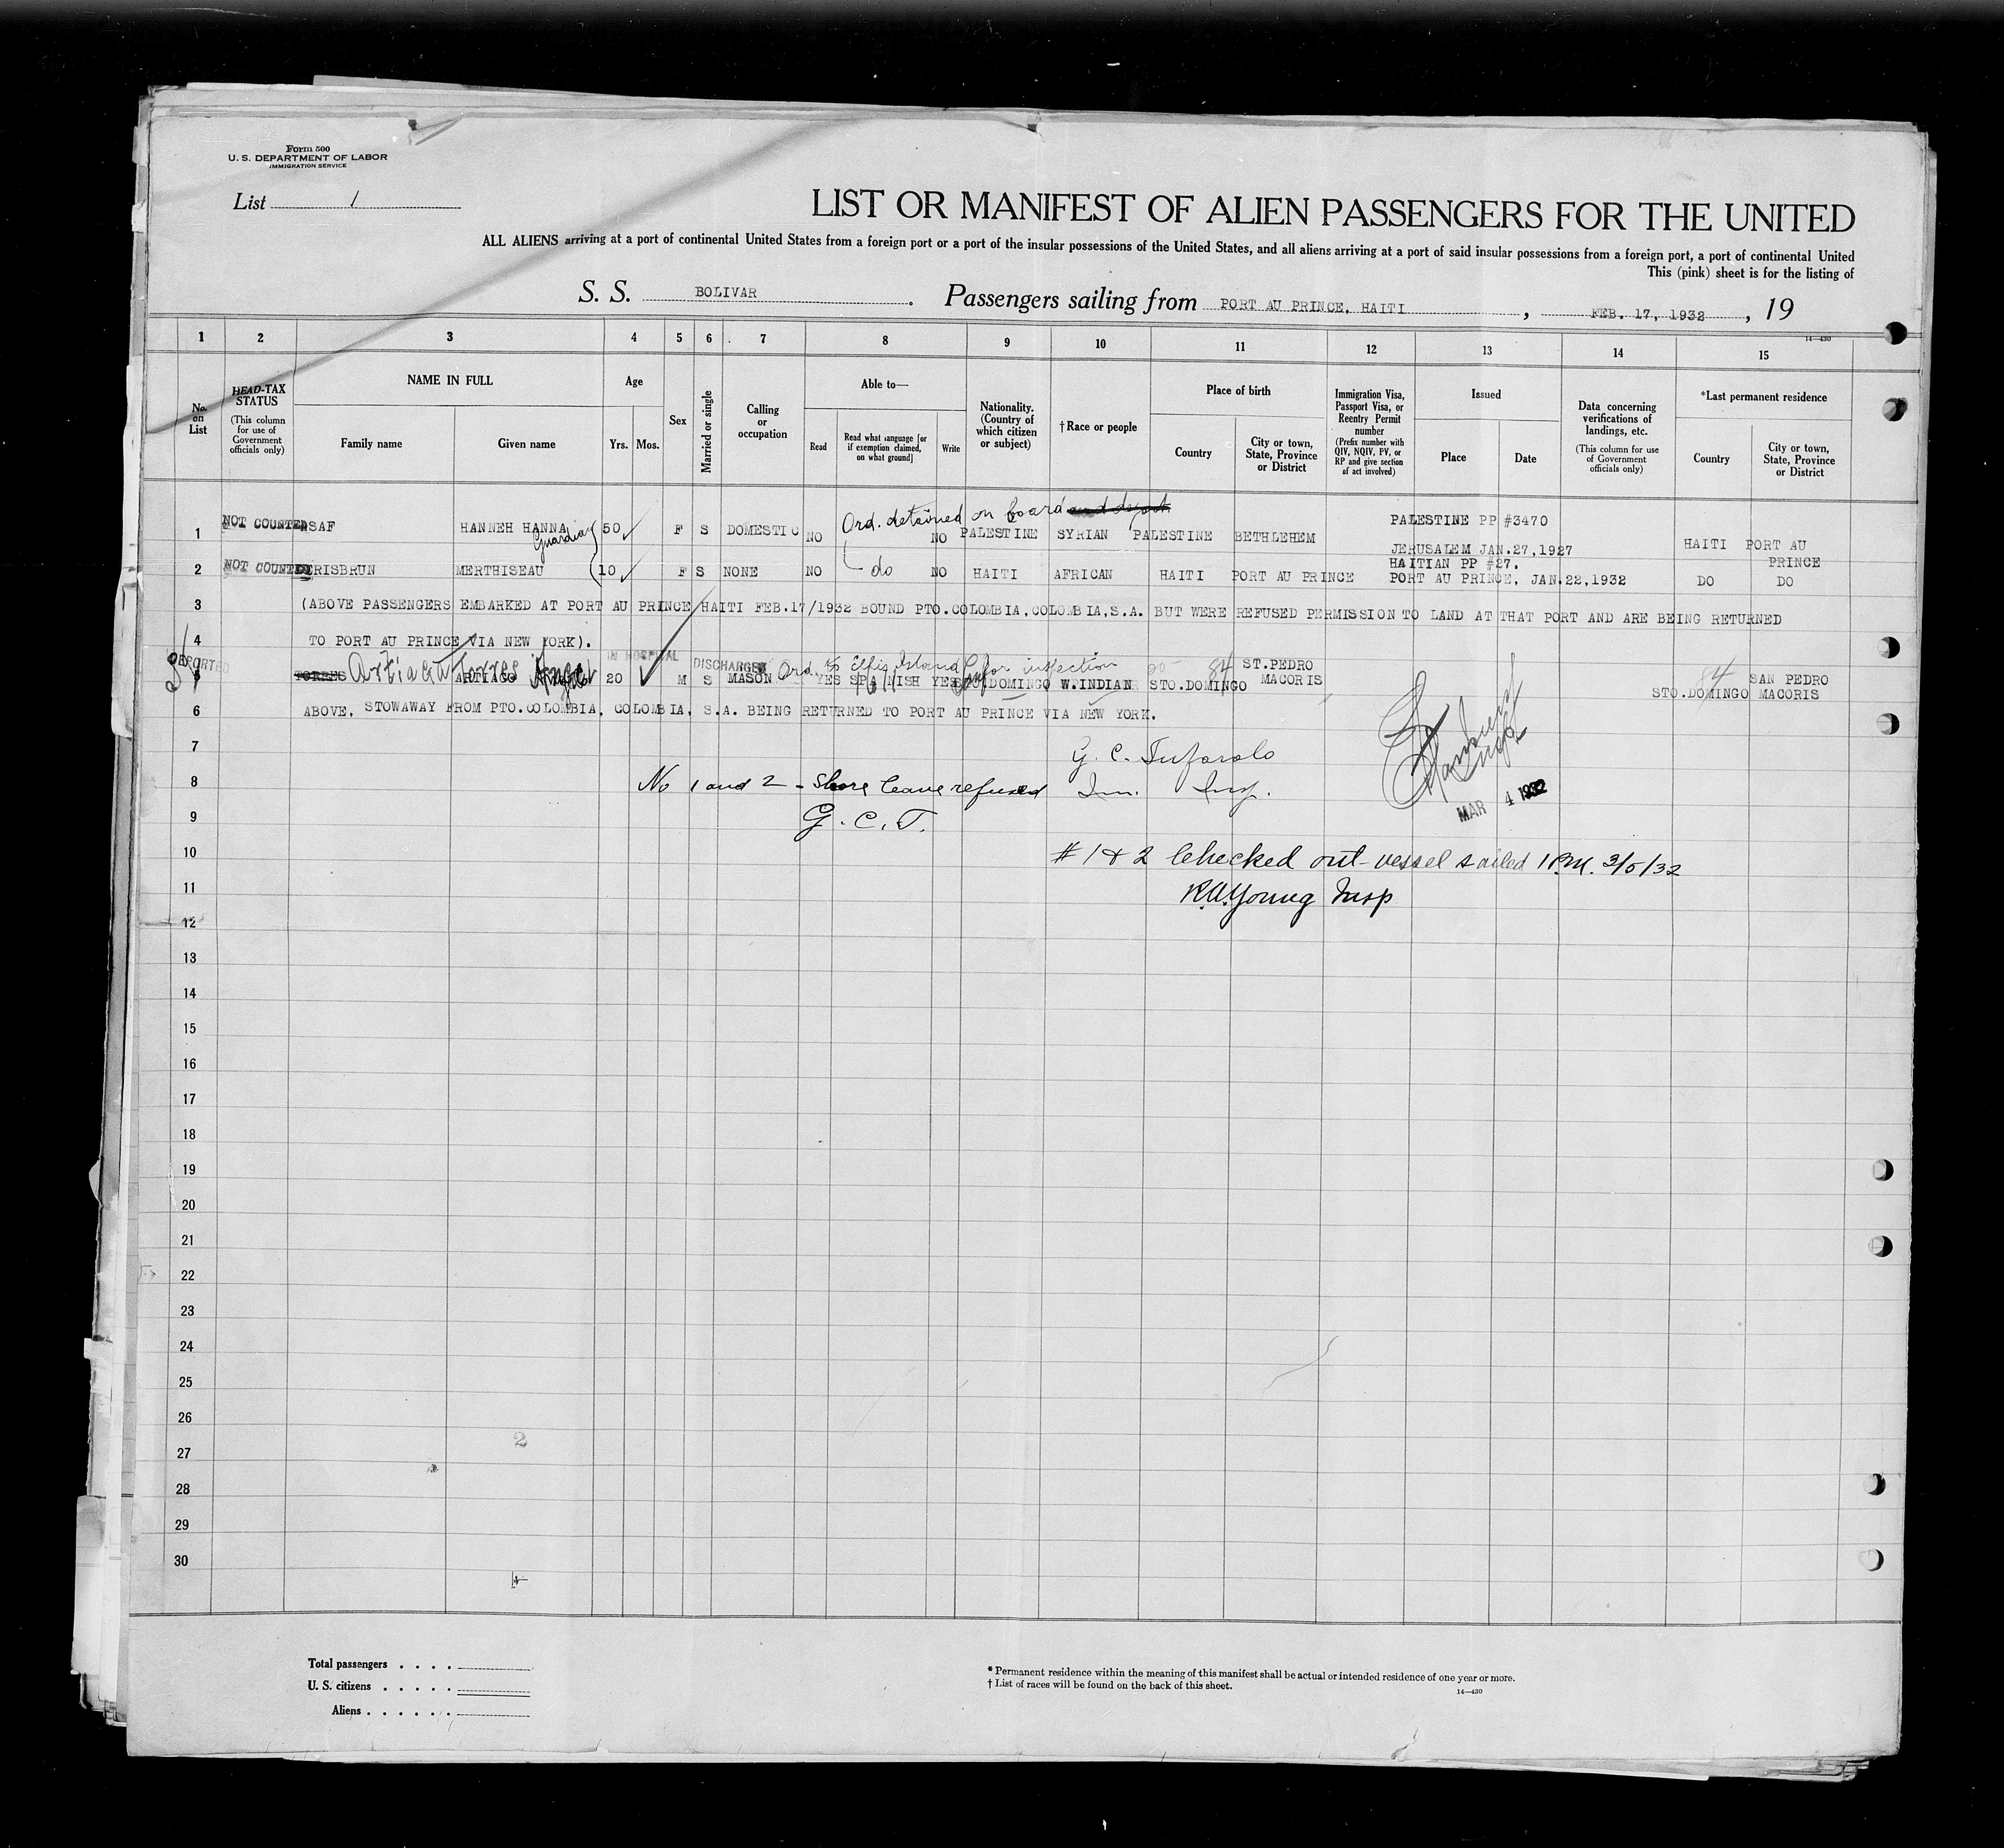 Form 500
U. S. DEPARTMENT OF LABOR
IMMIGRATION SERVICE
List 1
LIST OR MANIFEST OF ALIEN PASSENGERS FOR THE UNITED
ALL ALIENS arriving at a port of continental United States from a foreign port or a port of the insular possessions of the United States, and all aliens arriving at a port of said insular possessions from a foreign port, a port of continental United
This (pink) sheet is for the listing of
S. S. BOLIVAR. Passengers sailing from PORT AU PRINCE, HAITI, FEB. 17, 1932, 19
14—430
1 2 3 4 5 6 7 8 9 10 11 12 13 14 15
No. on List
HEAD-TAX STATUS
(This column for use of Government officials only)
NAME IN FULL
Family name
Given name
Age
Yrs. Mos.
Sex
Married or single
Calling or occupation
Able to—
Read
Read what language [or if exemption claimed, on what ground]
Write
Nationality. (Country of which citizen or subject)
†Race or people
Place of birth
Country
City or town, State, Province or District
Immigration Visa, Passport Visa, or Reentry Permit number
(Prefix number with QIV, NQIV, PV, or RP and give section of act involved)
Issued
Place
Date
Data concerning verifications of landings, etc.
(This column for use of Government officials only)
*Last permanent residence
Country
City or town, State, Province or District
Ord. detained on board and deport
1 NOT COUNTED SAF HANNEH HANNA 50 F S DOMESTIC NO NO PALESTINE SYRIAN PALESTINE BETHLEHEM PALESTINE PP #3470 JERUSALEM JAN.27,1927 HAITI PORT AU PRINCE
Guardian
2 NOT COUNTED RISBRUN MERTHISEAU 10 F S NONE NO do NO HAITI AFRICAN HAITI PORT AU PRINCE HAITIAN PP #27. PORT AU PRINCE, JAN.22,1932 DO DO
3 (ABOVE PASSENGERS EMBARKED AT PORT AU PRINCE HAITI FEB.17/1932 BOUND PTO.COLOMBIA,COLOMBIA,S.A. BUT WERE REFUSED PERMISSION TO LAND AT THAT PORT AND ARE BEING RETURNED
4 TO PORT AU PRINCE VIA NEW YORK).
DEPORTED
IN HOSPITAL DISCHARGED Ord. to Ellis Island for inspection
5 TORRES Artiaga Torres ARTIAGO Angel 20 M S MASON YES SPANISH YES STO.DOMINGO W.INDIAN STO.DOMINGO 84 ST.PEDRO MACORIS STO.DOMINGO 84 SAN PEDRO MACORIS
6 ABOVE, STOWAWAY FROM PTO.COLOMBIA, COLOMBIA, S.A. BEING RETURNED TO PORT AU PRINCE VIA NEW YORK.
7
G. C. Tufarolo
8 No 1 and 2 - Shore leave refused Im. Insp.
MAR 4 1932
9 G. C. T.
10 # 1 & 2 Checked out - vessel sailed 1 P.M. 3/5/32
11 R.W. Young Insp
12
13
14
15
16
17
18
19
20
21
22
23
24
25
26
27
2
28
29
30
Total passengers . . . .
U. S. citizens . . . . .
Aliens . . . . . .
* Permanent residence within the meaning of this manifest shall be actual or intended residence of one year or more.
† List of races will be found on the back of this sheet.
14—430